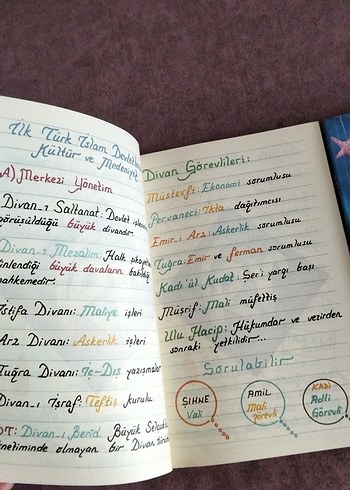 İlk Türk İslam Devletleri
Kültür ve Medeniyet
A) Merkezi Yönetim
Divan-ı Saltanat: Devlet işlerinin
görüşüldüğü büyük divandır.
Divan-ı Mezalim: Halk
dinlendiği büyük davaların
mahkemedir.
İstifa Divanı: Maliye işleri
Arz Divanı: Askerlik işleri
Tuğra Divanı: İç-Dış yazışmalar
Divan-ı İşraf: Teftiş kurulu
NOT: Divan-ı Berid Büyük Selçuklu
yönetiminde olmayan bir Divan
Divan Görevlileri:
Müstevfi: Ekonomi sorumlusu
Pervaneci: Ikta dağıtımcısı
Emir-i Arz: Askerlik sorumlusu
Tuğra: Emir ve ferman sorumlusu
Kadı'ül Kudat: Şer'i yargı başı
Müşrif: Mali müfettiş
Ulu Hacip: Hükümdar ve vezirden
sonraki yetkilidir...
Sorulabilir
ŞIHNE
Vali
AMİL
Mali
Görevli
KADI
Adli
Görevli